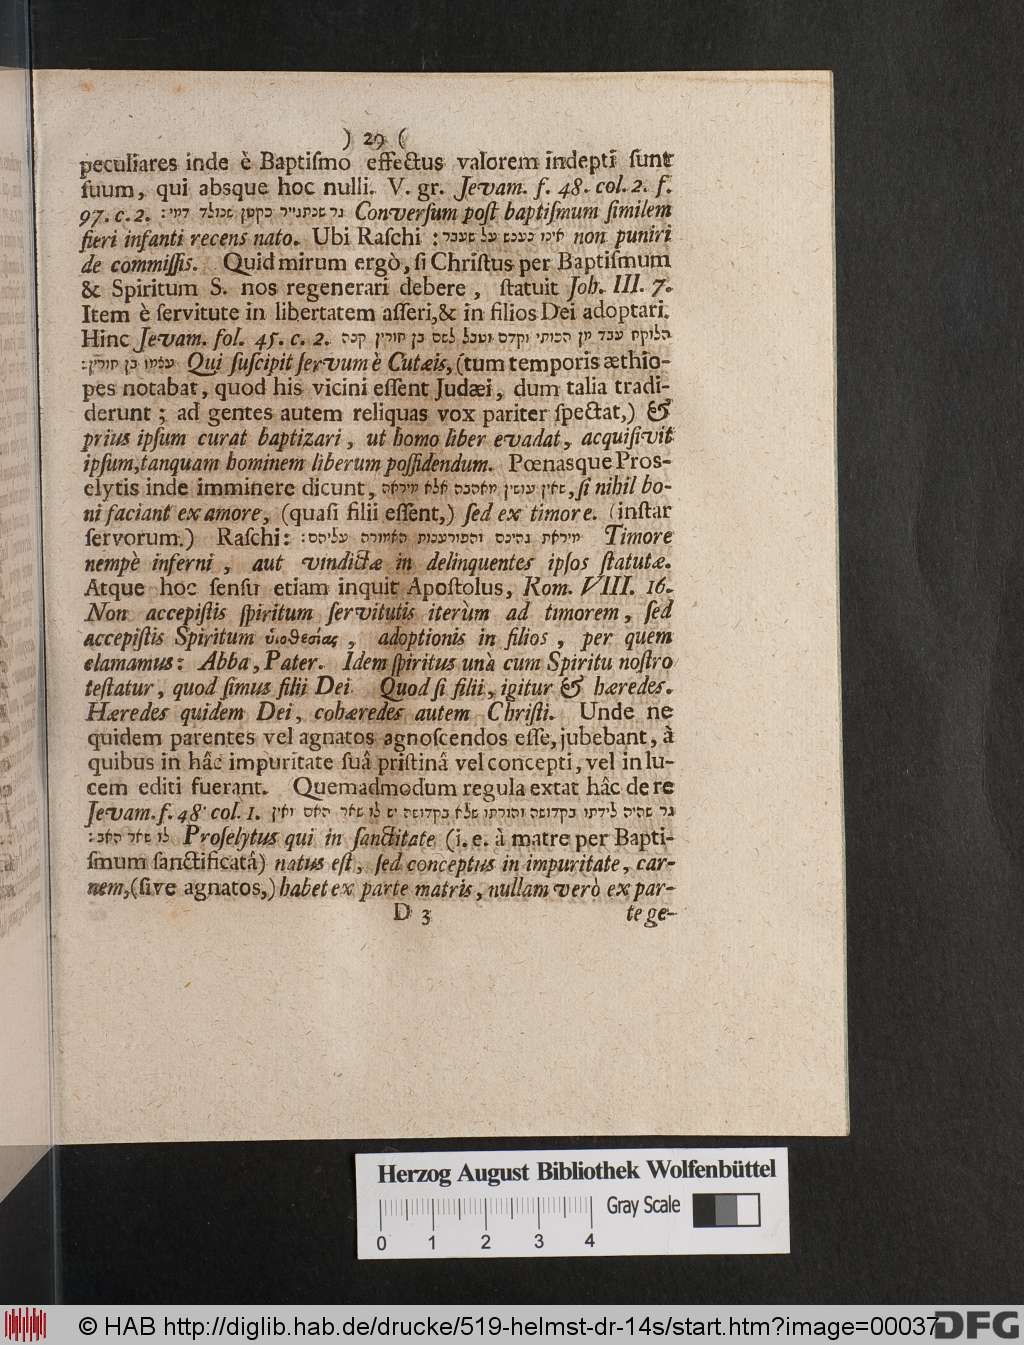 ) 29 (
peculiares inde è Baptiſmo effectus valorem indepti ſunt
ſuum, qui absque hoc nulli. V. gr. Jevam. f. 48. col. 2. f.
97. c. 2. גר שנתגייר כקטן שנולד דמי: Converſum poſt baptiſmum ſimilem
fieri infanti recens nato. Ubi Raſchi : אינו נענש על שעבר non puniri
de commiſſis. Quid mirum ergò, ſi Chriſtus per Baptiſmum
& Spiritum S. nos regenerari debere, ſtatuit Joh. III. 7.
Item è ſervitute in libertatem aſſeri, & in filios Dei adoptari.
Hinc Jevam. fol. 45. c. 2. הלוקח עבד מן הכותי וקדם וטבל לשם בן חורין קנה
עצמו בן חורין: Qui ſuſcipit ſervum è Cutæis, (tum temporis æthio-
pes notabat, quod his vicini eſſent Judæi, dum talia tradi-
derunt ; ad gentes autem reliquas vox pariter ſpectat,) &
prius ipſum curat baptizari, ut homo liber evadat, acquiſivit
ipſum, tanquam hominem liberum poſſidendum. PœnasqueProſ-
elytis inde imminere dicunt, שאין עושין מאהבה אלא מיראה, ſi nihil bo-
ni faciant ex amore, (quaſi filii eſſent,) ſed ex timore. (inſtar
ſervorum.) Raſchi : מיראת גהינם והפורענות האמורה עליהם: Timore
nempè inferni, aut vindictæ in delinquentes ipſos ſtatutæ.
Atque hoc ſenſu etiam inquit Apoſtolus, Rom. VIII. 16.
Non accepiſtis ſpiritum ſervitutis iterùm ad timorem, ſed
accepiſtis Spiritum ὑιοθεσίας, adoptionis in filios, per quem
clamamus: Abba, Pater. Idem ſpiritus unà cum Spiritu noſtro
teſtatur, quod ſimus filii Dei Quod ſi filii, igitur & hæredes.
Hæredes quidem Dei, cohæredes autem Chriſti. Unde ne
quidem parentes vel agnatos agnoſcendos eſſe, jubebant, à
quibus in hâc impuritate ſuâ priſtinâ vel concepti, vel in lu-
cem editi fuerant. Quemadmodum regula extat hâc de re
Jevam. f. 48 col. 1. גר שהיה לידתו בקדושה והורתו שלא בקדושה יש לו שאר האם ואין
לו שאר האב: Proſelytus qui in ſanctitate (i. e. à matre per Bapti-
ſmum ſanctificatâ) natus eſt, ſed conceptus in impuritate, car-
nem, (ſive agnatos,) habet ex parte matris, nullam verò ex par-
D 3 te ge-
Herzog August Bibliothek Wolfenbüttel
Gray Scale
0 1 2 3 4
© HAB http://diglib.hab.de/drucke/519-helmst-dr-14s/start.htm?image=00037
DFG